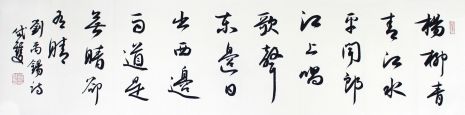 楊柳青
青江水
平聞郎
江上唱
歌聲
東邊日
出西邊
雨道是
無晴卻
有晴
劉禹錫詩